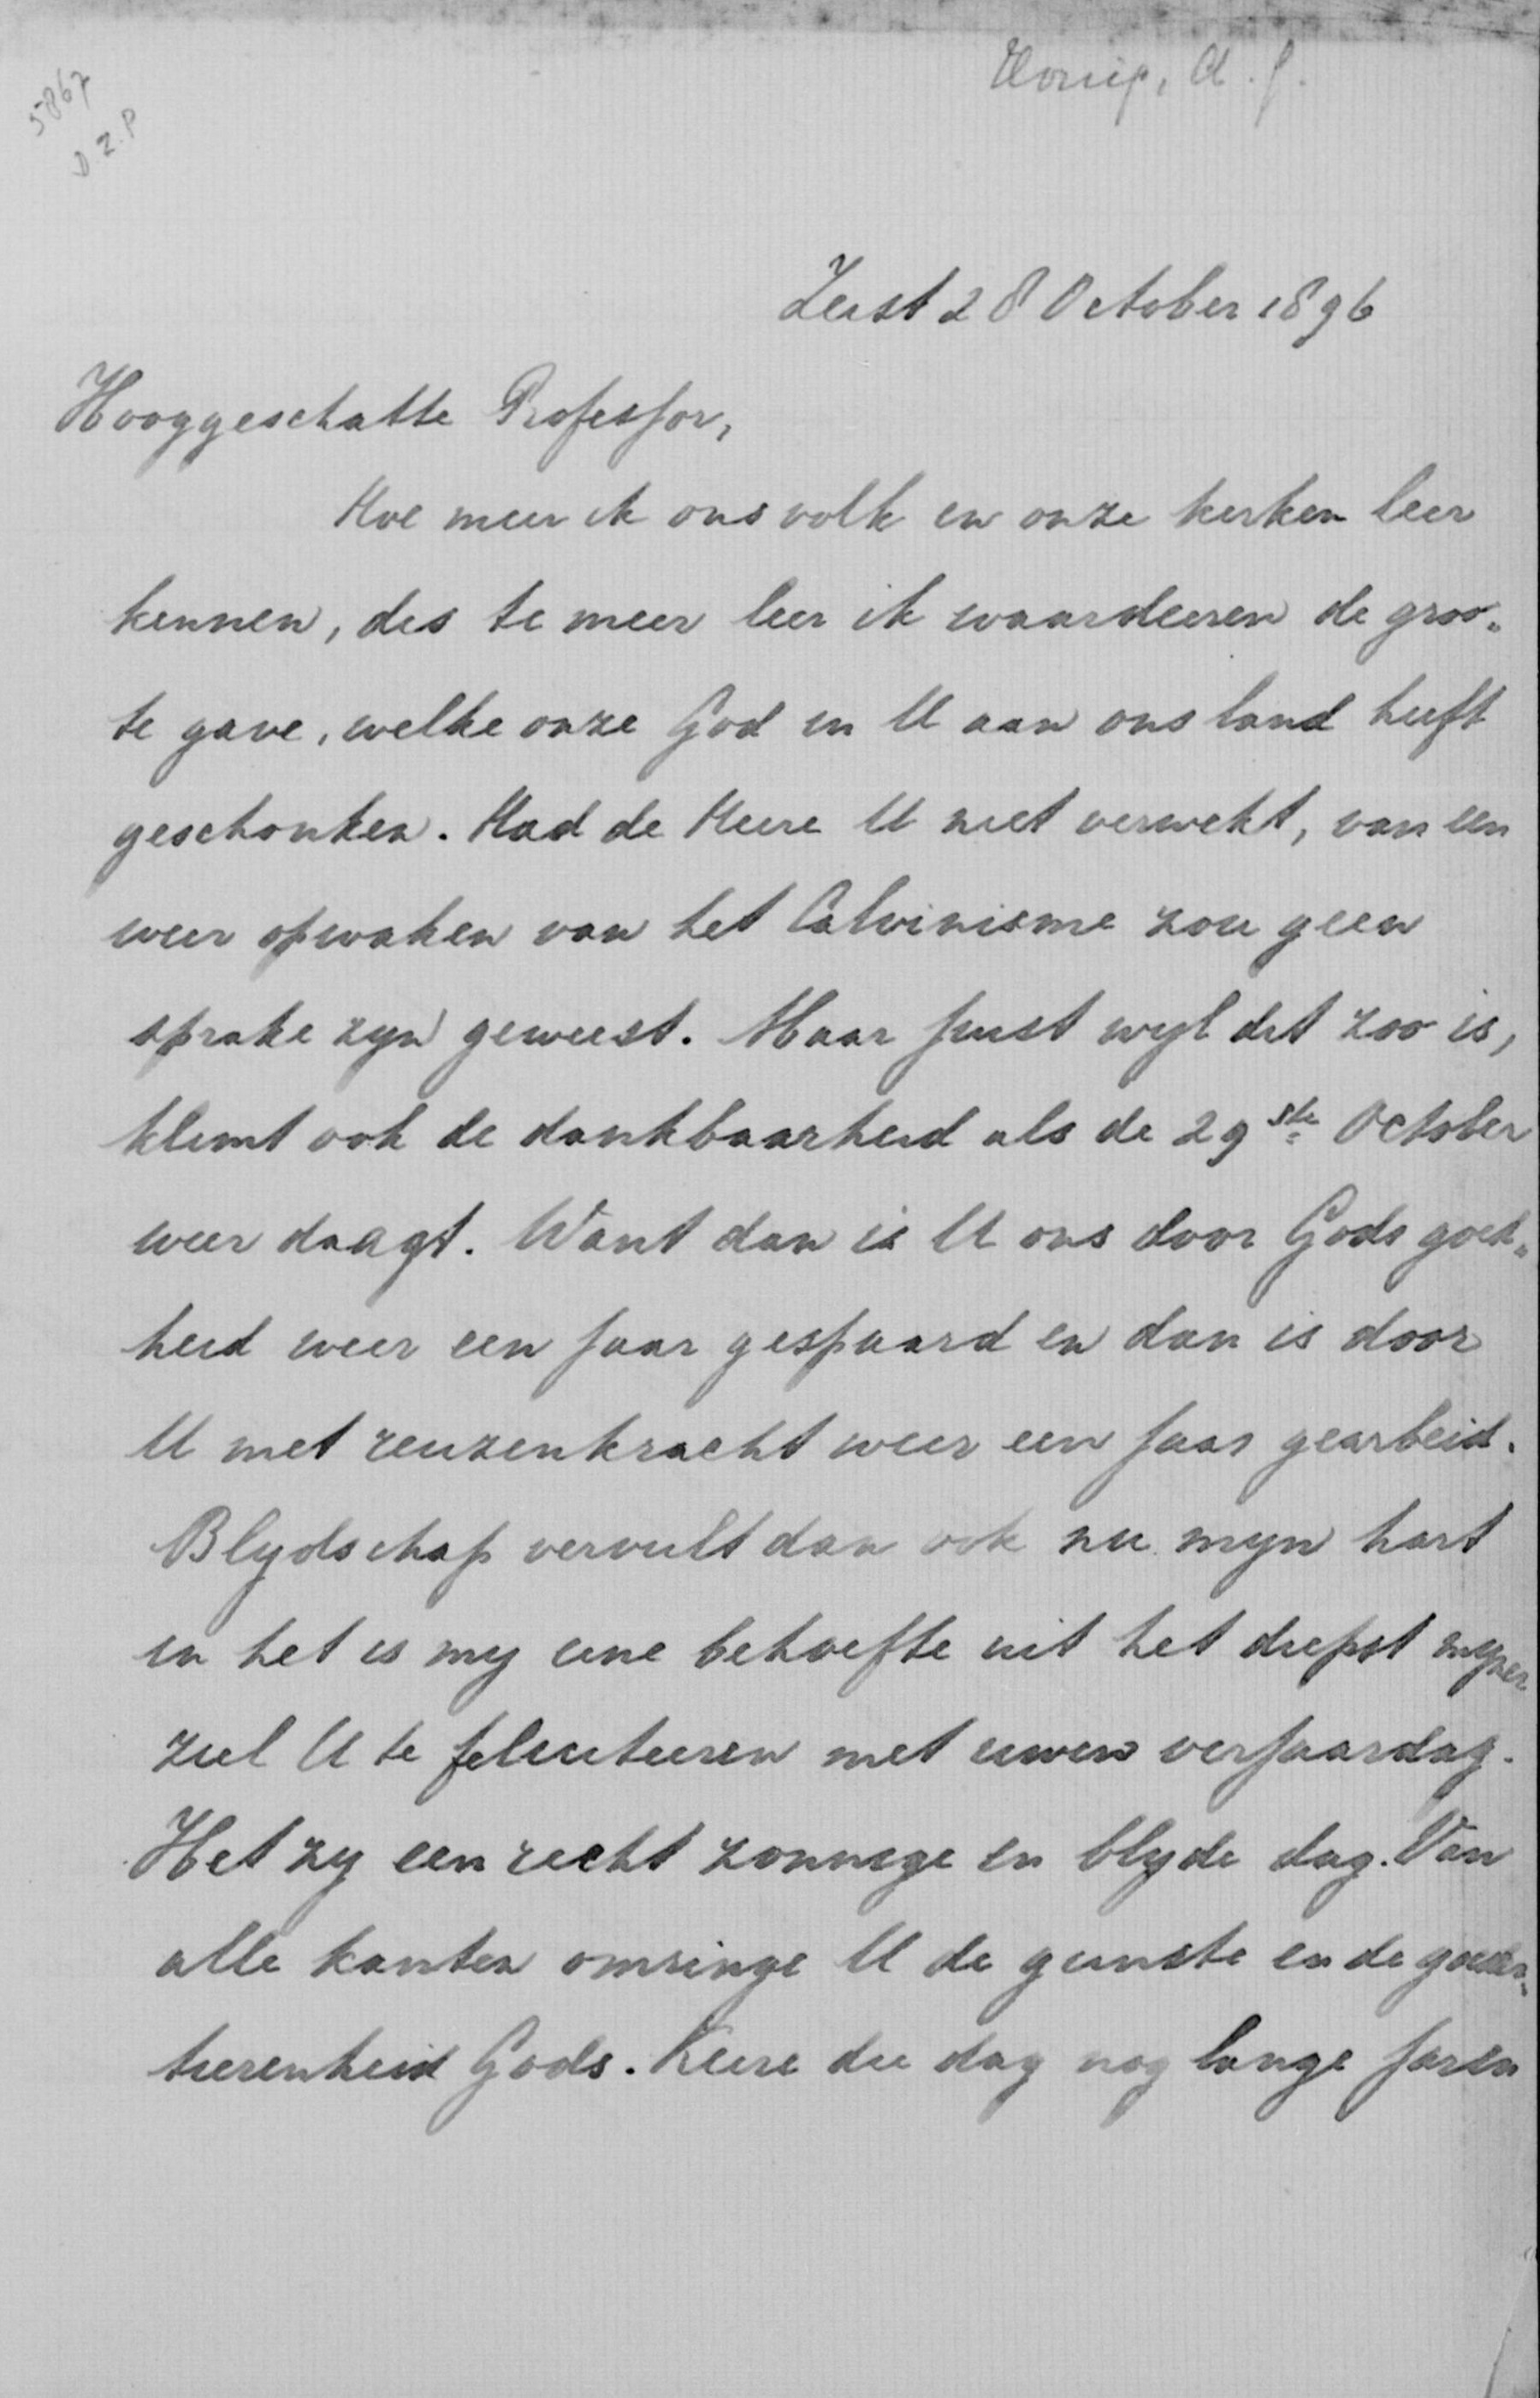 5867
D Z. P
Honig, A. G.
Zeist 28 October 1896
Hooggeschatte Professor,
Hoe meer ik ons volk en onze kerken leer
kennen, des te meer leer ik waardeeren de groo„
te gave, welke onze God in U aan ons land heeft
geschonken. Had de Heere U niet verwekt, van een
weer opwaken van het Calvinisme zou geen
sprake zyn geweest. Maar juist wyl dit zoo is,
klimt ook de dankbaarheid als de 29ste October
weer daagt. Want dan is U ons door Gods goed„
heid weer een jaar gespaard en dan is door
U met reuzenkracht weer een jaar gearbeid.
Blydschap vervult dan ook nu myn hart
en het is my eene behoefte uit het diepst myner
ziel U te feliciteeren met uwen verjaardag.
Het zy een recht zonnige en blyde dag. Van
alle kanten omringe U de gunste en de goeder„
tierenheid Gods. Keere die dag nog lange jaren